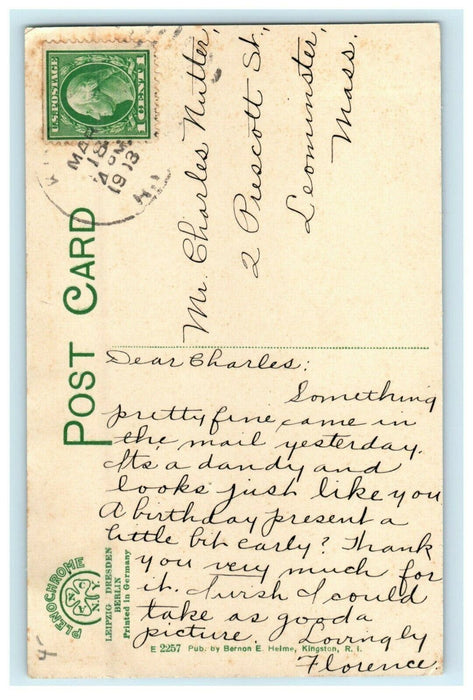 U.S. POSTAGE
1 CENT 1
MAR
18
4 PM
1913
POST CARD
Mr. Charles Nutter,
2 Prescott St.,
Leominster,
Mass.
Dear Charles:
Something
pretty fine came in
the mail yesterday.
Its a dandy and
looks just like you
A birthday present a
little bit early? Thank
you very much for
it. I wish I could
take as good a
picture. Lovingly
Florence.
PLENOCHROME
LEIPZIG DRESDEN
BERLIN
Printed in Germany
E 2257 Pub. by Bernon E. Helme, Kingston, R. I.